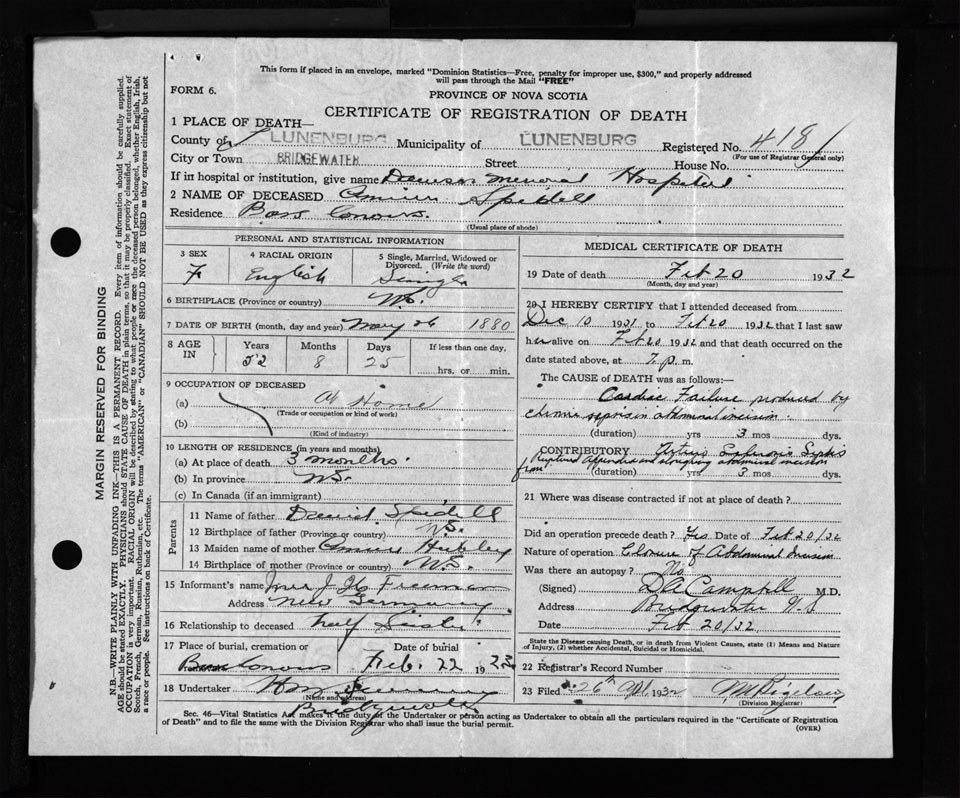 This form if placed in an envelope, marked "Dominion Statistics—Free, penalty for improper use, $300," and properly addressed
will pass through the Mail "FREE"
FORM 6.
PROVINCE OF NOVA SCOTIA
CERTIFICATE OF REGISTRATION OF DEATH
1 PLACE OF DEATH—
County of LUNENBURG Municipality of LUNENBURG Registered No. 418
(For use of Registrar General only)
City or Town BRIDGEWATER Street House No.
If in hospital or institution, give name Dawson Memorial Hospital
2 NAME OF DECEASED Spidell
Residence
(Usual place of abode)
PERSONAL AND STATISTICAL INFORMATION
3 SEX 4 RACIAL ORIGIN 5 Single, Married, Widowed or Divorced. (Write the word)
F English Single
6 BIRTHPLACE (Province or country) N.S.
7 DATE OF BIRTH (month, day and year) May 26 1880
8 AGE IN Years Months Days If less than one day,
52 8 25 hrs. or min.
9 OCCUPATION OF DECEASED
(a) At Home
(Trade or occupation or kind of work)
(b)
(Kind of industry)
10 LENGTH OF RESIDENCE (in years and months)
(a) At place of death 3 months
(b) In province N.S.
(c) In Canada (if an immigrant)
Parents
11 Name of father Spidell
12 Birthplace of father (Province or country) N.S.
13 Maiden name of mother
14 Birthplace of mother (Province or country) N.S.
15 Informant's name Freeman
Address New Germany
16 Relationship to deceased half Sister
17 Place of burial, cremation or Date of burial
Feb. 22 1932
18 Undertaker
(Name and address)
Bridgewater
MEDICAL CERTIFICATE OF DEATH
19 Date of death Feb 20 1932
(Month, day and year)
20 I HEREBY CERTIFY that I attended deceased from
Dec 10 1931 to Feb 20 1932 that I last saw
her alive on Feb 20 1932 and that death occurred on the
date stated above, at 7 p. m.
The CAUSE of DEATH was as follows:—
Cardiac Failure produced by
chronic sepsis in abdominal incision.
(duration) yrs 3 mos dys.
CONTRIBUTORY Sepsis
from Ruptured Appendix and sloughing abdominal incision
(duration) yrs 3 mos dys.
21 Where was disease contracted if not at place of death?
Did an operation precede death? Yes Date of Feb 20/32
Nature of operation Closure of Abdominal Incision
Was there an autopsy? No
(Signed) Campbell M.D.
Address Bridgewater N.S
Date Feb 20/32
State the Disease causing Death, or in death from Violent Causes, state (1) Means and Nature of Injury, (2) whether Accidental, Suicidal or Homicidal.
22 Registrar's Record Number
23 Filed 26th 1932
(Division Registrar)
Sec. 46—Vital Statistics Act makes it the duty of the Undertaker or person acting as Undertaker to obtain all the particulars required in the "Certificate of Registration
of Death" and to file the same with the Division Registrar who shall issue the burial permit.
(OVER)
MARGIN RESERVED FOR BINDING
N.B.—WRITE PLAINLY WITH UNFADING INK—THIS IS A PERMANENT RECORD. Every item of information should be carefully supplied.
AGE should be stated EXACTLY. PHYSICIANS should STATE CAUSE OF DEATH in plain terms, so that it may be properly classified. Exact statement of
OCCUPATION is very important. RACIAL ORIGIN will be described by stating to what people or race the deceased person belonged, whether English, Irish,
Scotch, French, German, Russian, Ruthenian, etc. The terms "AMERICAN" or "CANADIAN" SHOULD NOT BE USED as they express citizenship but not
a race or people. See instructions on back of Certificate.